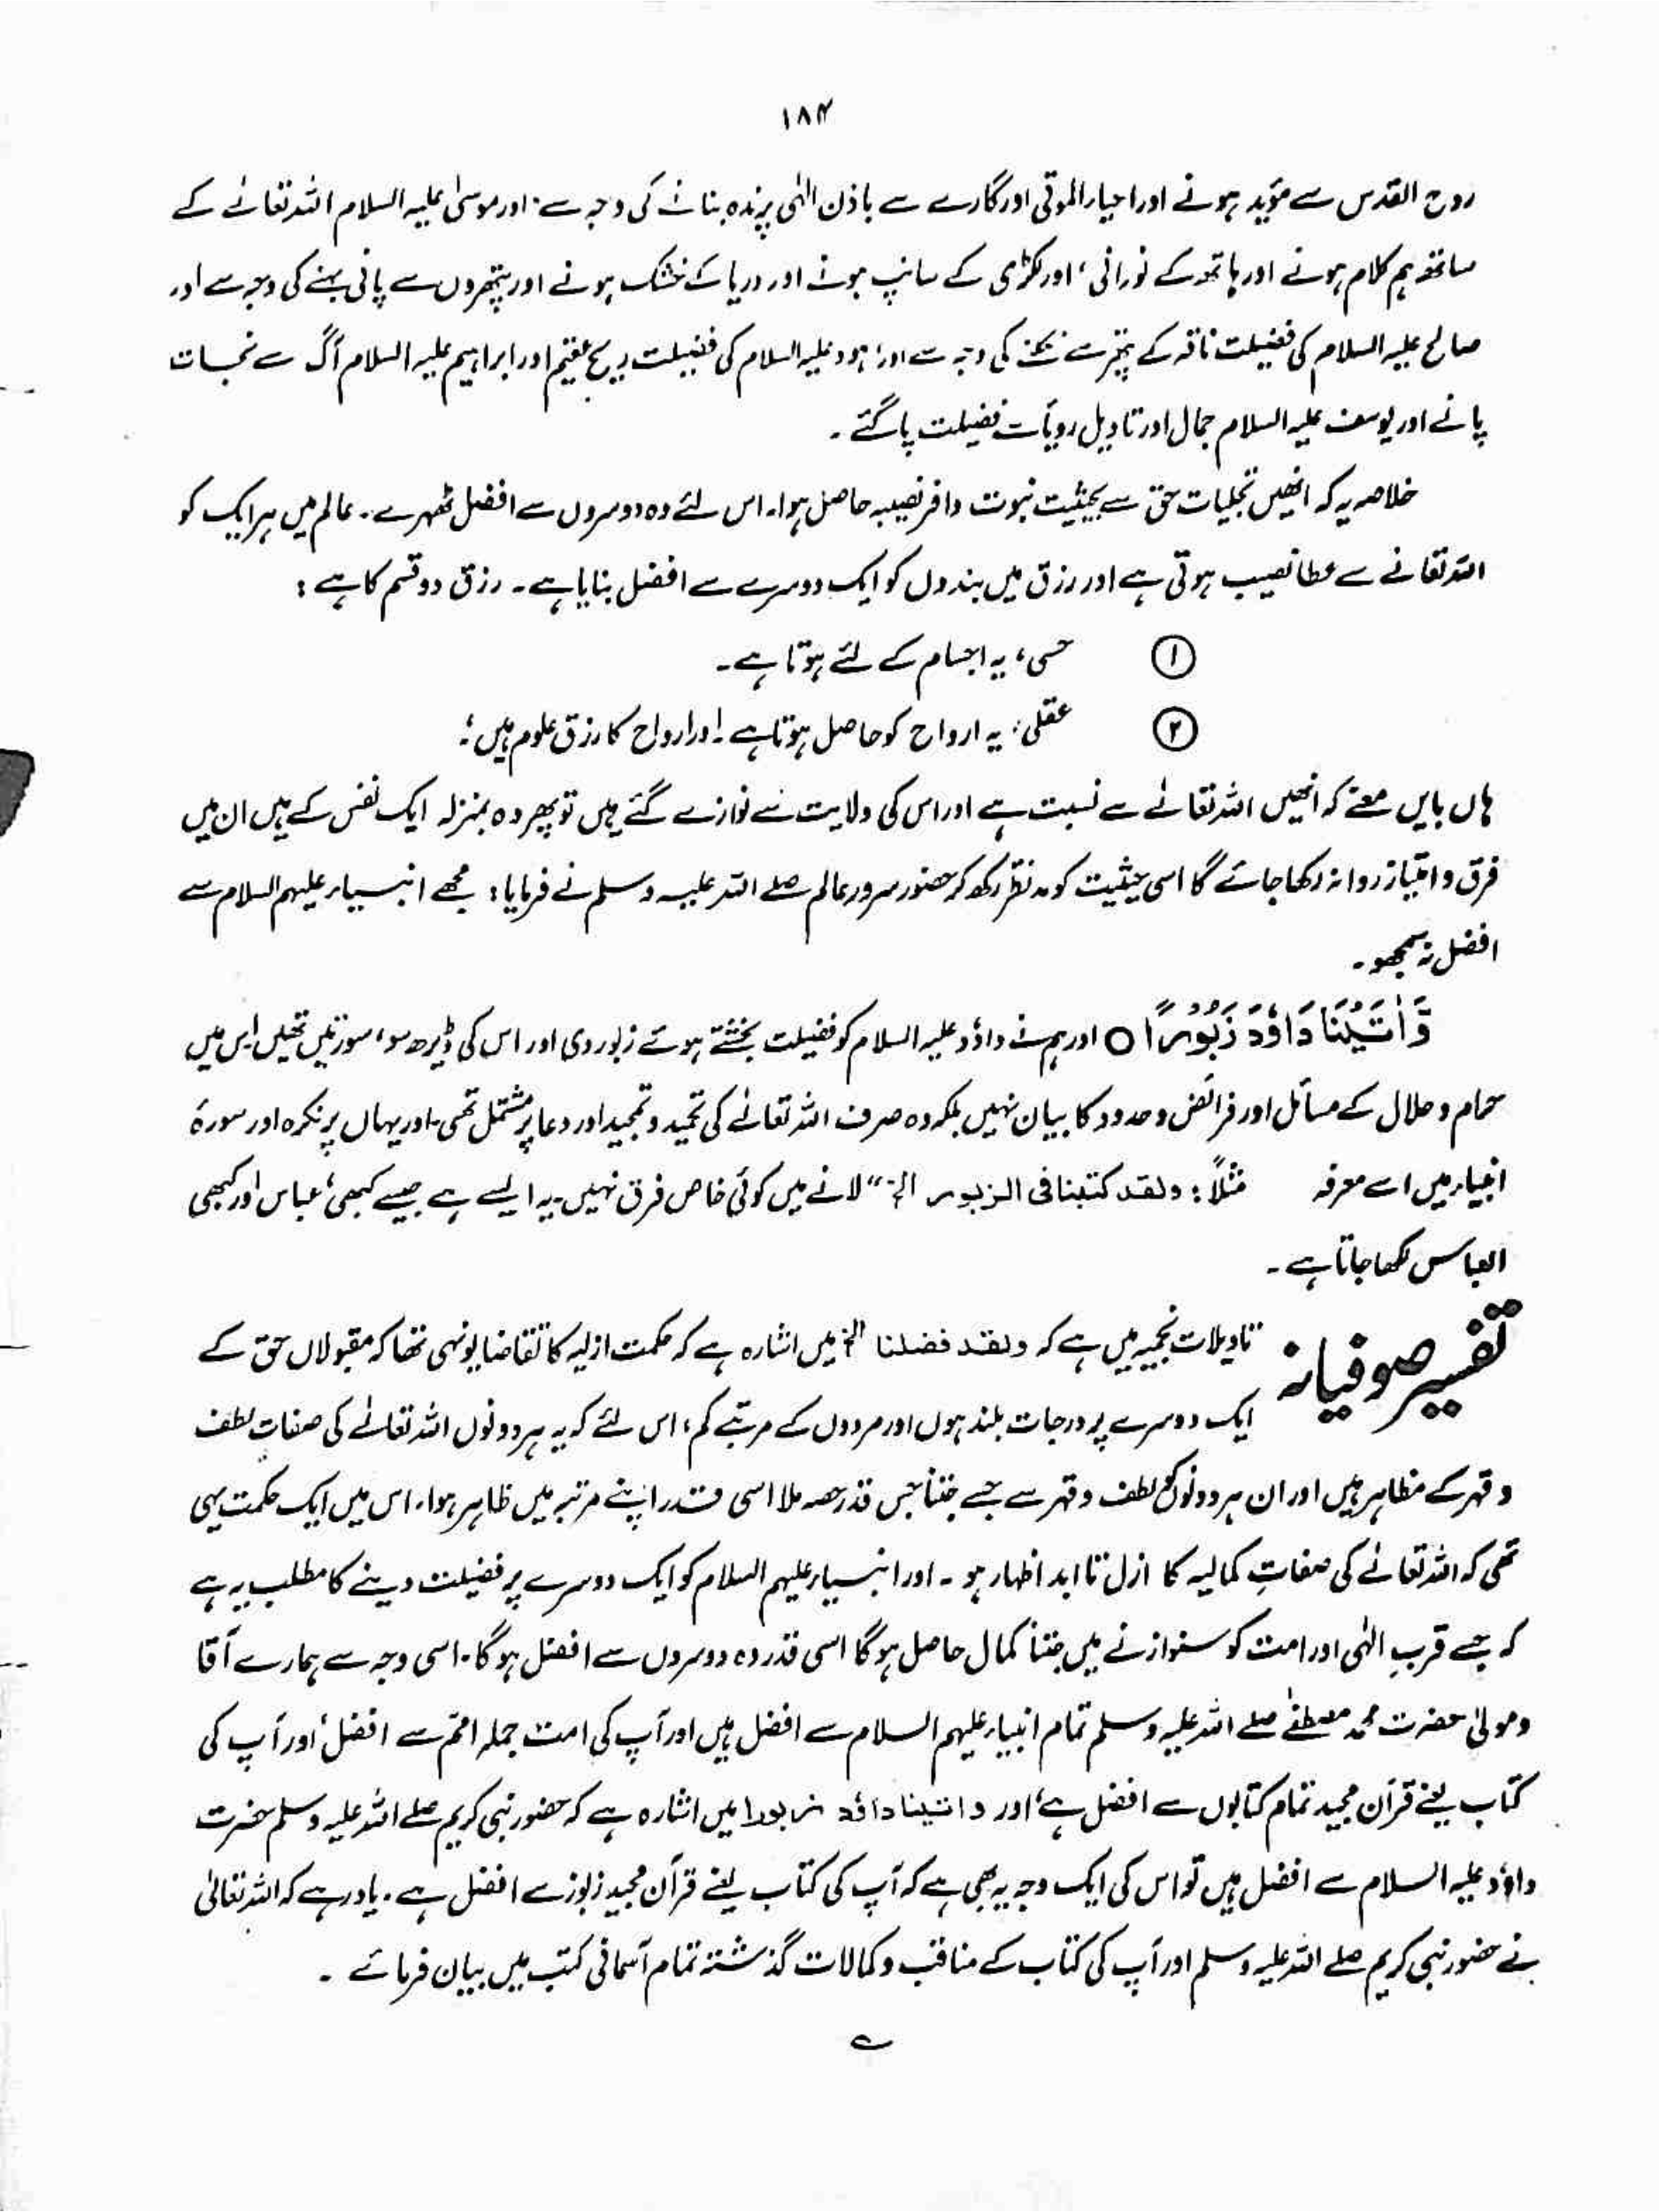 ۱۸۴
روح القدس سے مؤید ہونے اور احیاء الموتیٰ اور گارے سے باذن الٰہی پرندہ بنانے کی وجہ سے، اور موسیٰ علیہ السلام اللہ تعالےٰ کے
ساتھ ہم کلام ہونے اور ہاتھ کے نورانی، اور لکڑی کے سانپ ہونے اور دریا کے خشک ہونے اور پتھروں سے پانی بہنے کی وجہ سے اور
صالح علیہ السلام کی فضیلت ناقہ کے پتھر سے نکلنے کی وجہ سے اور ہود علیہ السلام کی فضیلت ریح عقیم اور ابراہیم علیہ السلام آگ سے نجات
پانے اور یوسف علیہ السلام جمال اور تاویل رویأ سے فضیلت پا گئے۔
خلاصہ یہ کہ انھیں تجلیات حق سے بحیثیت نبوت وافر نصیبہ حاصل ہوا۔ اس لئے وہ دوسروں سے افضل ٹھہرے۔ عالم میں ہر ایک کو
اللہ تعالےٰ سے عطا نصیب ہوتی ہے اور رزق میں بندوں کو ایک دوسرے سے افضل بنایا ہے۔ رزق دو قسم کا ہے :
① حسی، یہ اجسام کے لئے ہوتا ہے۔
② عقلی، یہ ارواح کو حاصل ہوتا ہے اور ارواح کا رزق علوم ہیں؛
ہاں بایں معنےٰ کہ انھیں اللہ تعالےٰ سے نسبت ہے اور اس کی ولایت سے نوازے گئے ہیں تو پھر وہ بمنزلہ ایک نفس کے ہیں ان میں
فرق و امتیاز روا نہ رکھا جائے گا اسی حیثیت کو مد نظر رکھ کر حضور سرور عالم صلے اللہ علیہ وسلم نے فرمایا: مجھے انبیاء علیہم السلام سے
افضل نہ سمجھو۔
وَّ اٰتَیْنَا دَاوٗدَ زَبُوْرًا ○ اور ہم نے داؤد علیہ السلام کو فضیلت بخشتے ہوئے زبور دی اور اس کی ڈیڑھ سو، سورتیں تھیں اس میں
حرام و حلال کے مسائل اور فرائض و حدود کا بیان نہیں بلکہ وہ صرف اللہ تعالےٰ کی تحمید و تمجید اور دعا پر مشتمل تھی۔ اور یہاں پر نکرہ اور سورۂ
انبیاء میں اسے معرفہ مثلاً: ولقد کتبنا فی الزبور الخ" لانے میں کوئی خاص فرق نہیں یہ ایسے ہے جیسے کبھی، عباس اور کبھی
العباس لکھا جاتا ہے۔
تفسیر صوفیانہ تاویلات نجمیہ میں ہے کہ ولقد فضلنا الخ میں اشارہ ہے کہ حکمت ازلیہ کا تقاضا یونہی تھا کہ مقبولان حق کے
ایک دوسرے پر درجات بلند ہوں اور مردوں کے مرتبے کم، اس لئے کہ یہ ہر دونوں اللہ تعالےٰ کی صفات لطف
و قہر کے مظاہر ہیں اور ان ہر دونوں کو لطف و قہر سے جسے جتنا جس قدر حصہ ملا اسی قدر اپنے مرتبہ میں ظاہر ہوا، اس میں ایک حکمت یہی
تھی کہ اللہ تعالےٰ کی صفاتِ کمالیہ کا ازل تا ابد اظہار ہو۔ اور انبیاء علیہم السلام کو ایک دوسرے پر فضیلت دینے کا مطلب یہ ہے
کہ جسے قربِ الٰہی اور امت کو سنوارنے میں جتنا کمال حاصل ہو گا اسی قدر وہ دوسروں سے افضل ہو گا۔ اسی وجہ سے ہمارے آقا
و مولیٰ حضرت محمد مصطفےٰ صلے اللہ علیہ وسلم تمام انبیاء علیہم السلام سے افضل ہیں اور آپ کی امت جملہ امم سے افضل، اور آپ کی
کتاب یعنے قرآن مجید تمام کتابوں سے افضل ہے، اور واتینا داؤد زبورا میں اشارہ ہے کہ حضور نبی کریم صلے اللہ علیہ وسلم حضرت
داؤد علیہ السلام سے افضل ہیں تو اس کی ایک وجہ یہ بھی ہے کہ آپ کی کتاب یعنے قرآن مجید زبور سے افضل ہے۔ یاد رہے کہ اللہ تعالیٰ
نے حضور نبی کریم صلے اللہ علیہ وسلم اور آپ کی کتاب کے مناقب و کمالات گذشتہ تمام آسمانی کتب میں بیان فرمائے ۔